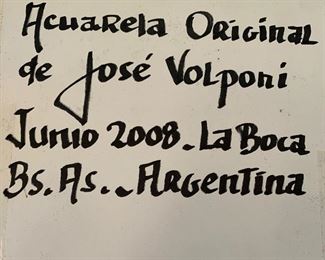 Acuarela Original
de José Volponi
Junio 2008. La Boca
Bs. As. - Argentina